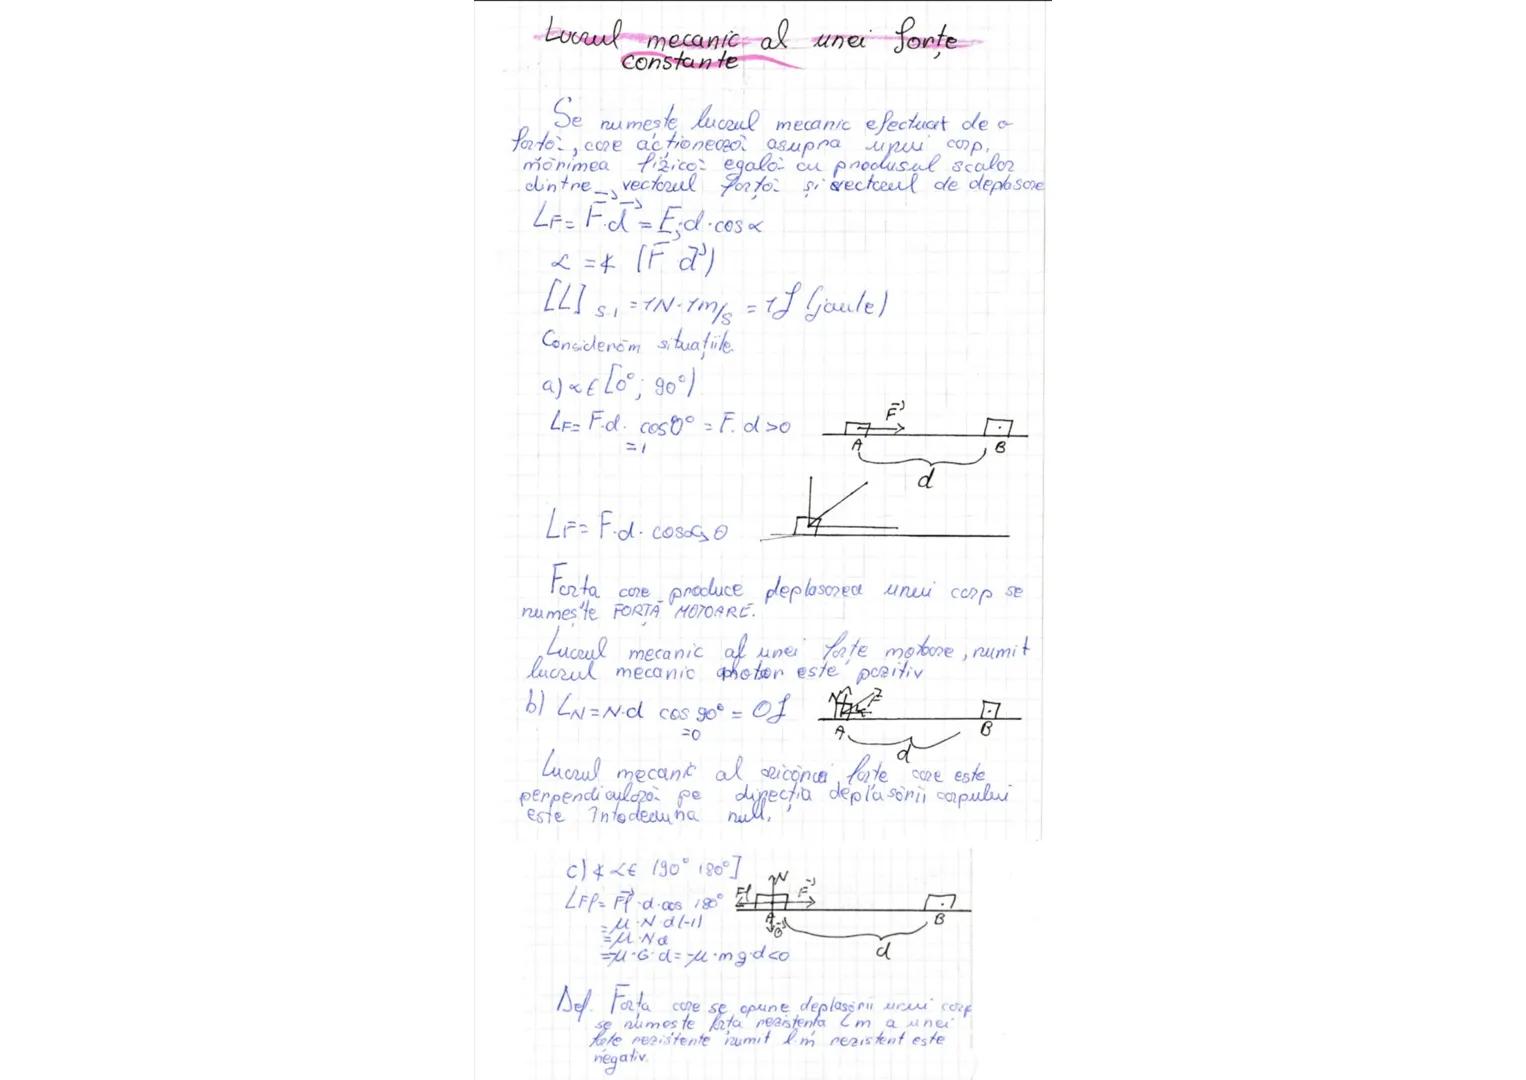 Lucrul mecanic al unei forțe
constante
Se numește lucrul mecanic efectuat de o
forță, care acționează asupra unui corp,
mărimea fizică egală cu produsul scalar
dintre vectorul forță și vectorul de deplasare
LF = F⃗·d⃗ = F·d·cos α
α = ∢ (F⃗ d⃗)
[L] S.I = 1N·1m/s = 1J (joule)
Considerăm situațiile
a) α ∈ [0°; 90°)
LF = F·d· cos 0° = F·d >0
=1
F⃗
A
B
d
LF = F·d· cos α > 0
Forța care produce deplasarea unui corp se
numește FORȚĂ MOTOARE.
Lucrul mecanic al unei forțe motoare, numit
lucrul mecanic motor este pozitiv
b) LN = N·d cos 90° = 0J
=0
N
A
B
d
Lucrul mecanic al oricărei forțe care este
perpendiculară pe direcția deplasării corpului
este întodeduna null.
c) ∢ α ∈ (90° 180°]
LFf = Ff·d·cos 180°
= μ·N·d(-1)
= μ·N d
= -μ·G·d = -μ·m g·d<0
Ff
N
F⃗
A
G
B
d
Def. Forța care se opune deplasării unui corp
se numește forța rezistenta Lm a unei
forțe rezistente numit l.m rezistent este
negativ.